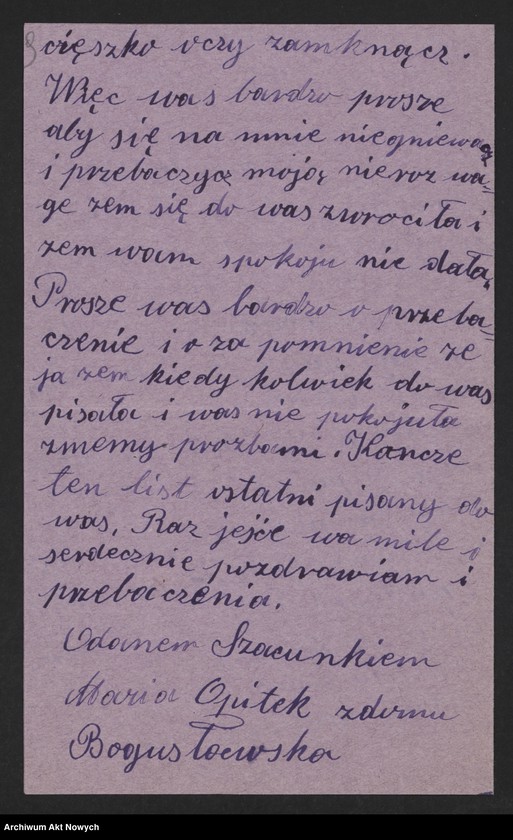 cięszko oczy zamknącz.
Więc was bardzo prosze
aby się na mnie niegniewacz
i przebaczycz mojoę nieroz wa=
ge zem się do was zwrociła i
zem wam spokoju nie dała,
Prosze was bardzo o przeba=
czenie i o za pomnienie ze
ja zem kiedy kolwiek do was
pisała i was nie pokojuła
zmemy prozbami. Kancze
ten list ostatni pisany do
was, Raz jeśce wa mile i
serdecznie pozdrawiam i
przebaczenia.
Odanem Szacunkiem
Maria Opitek zdomu
Bogusławska
Archiwum Akt Nowych